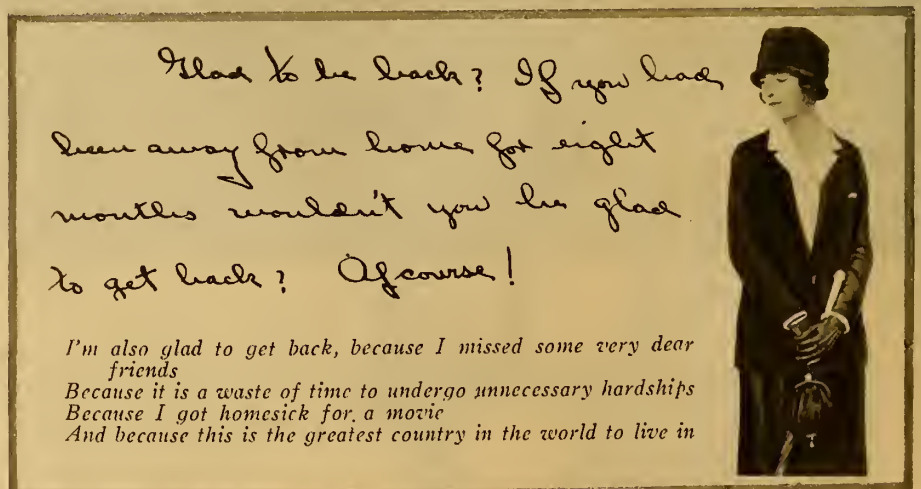 Glad to be back? If you had
been away from home for eight
months wouldn't you be glad
to get back? Of course!
I'm also glad to get back, because I missed some very dear
friends
Because it is a waste of time to undergo unnecessary hardships
Because I got homesick for a movie
And because this is the greatest country in the world to live in